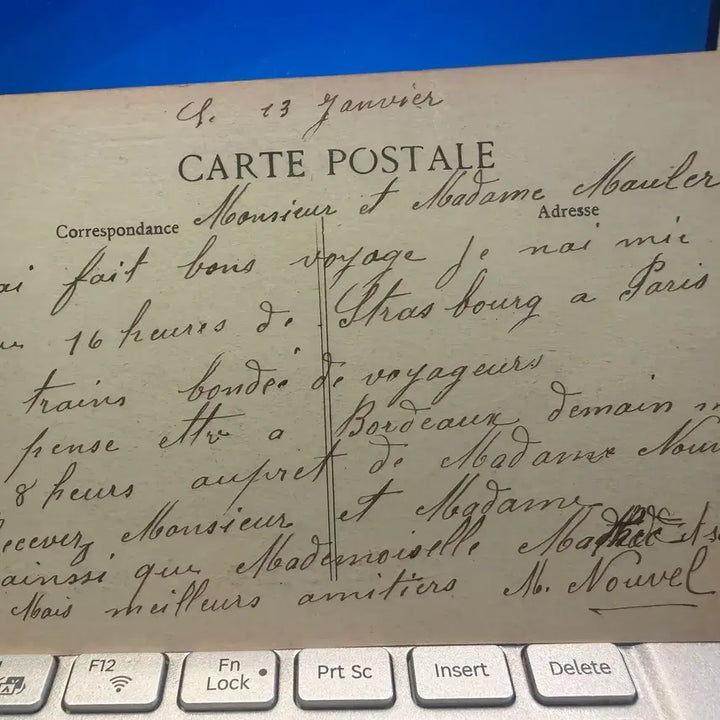 13 Janvier
CARTE POSTALE
Monsieur et Madame Mauler
Correspondance Adresse
ai fait bons voyage Je nai mis
16 heures de Strasbourg a Paris
trains bondée de voyageurs
pense ettre a Bordeaux demain
8 heurs aupret de Madame Nouv
ecevez Monsieur et Madame
ainssi que Mademoiselle et
Mais meilleurs amitiers M. Nouvel
F12
Fn Lock
Prt Sc
Insert
Delete